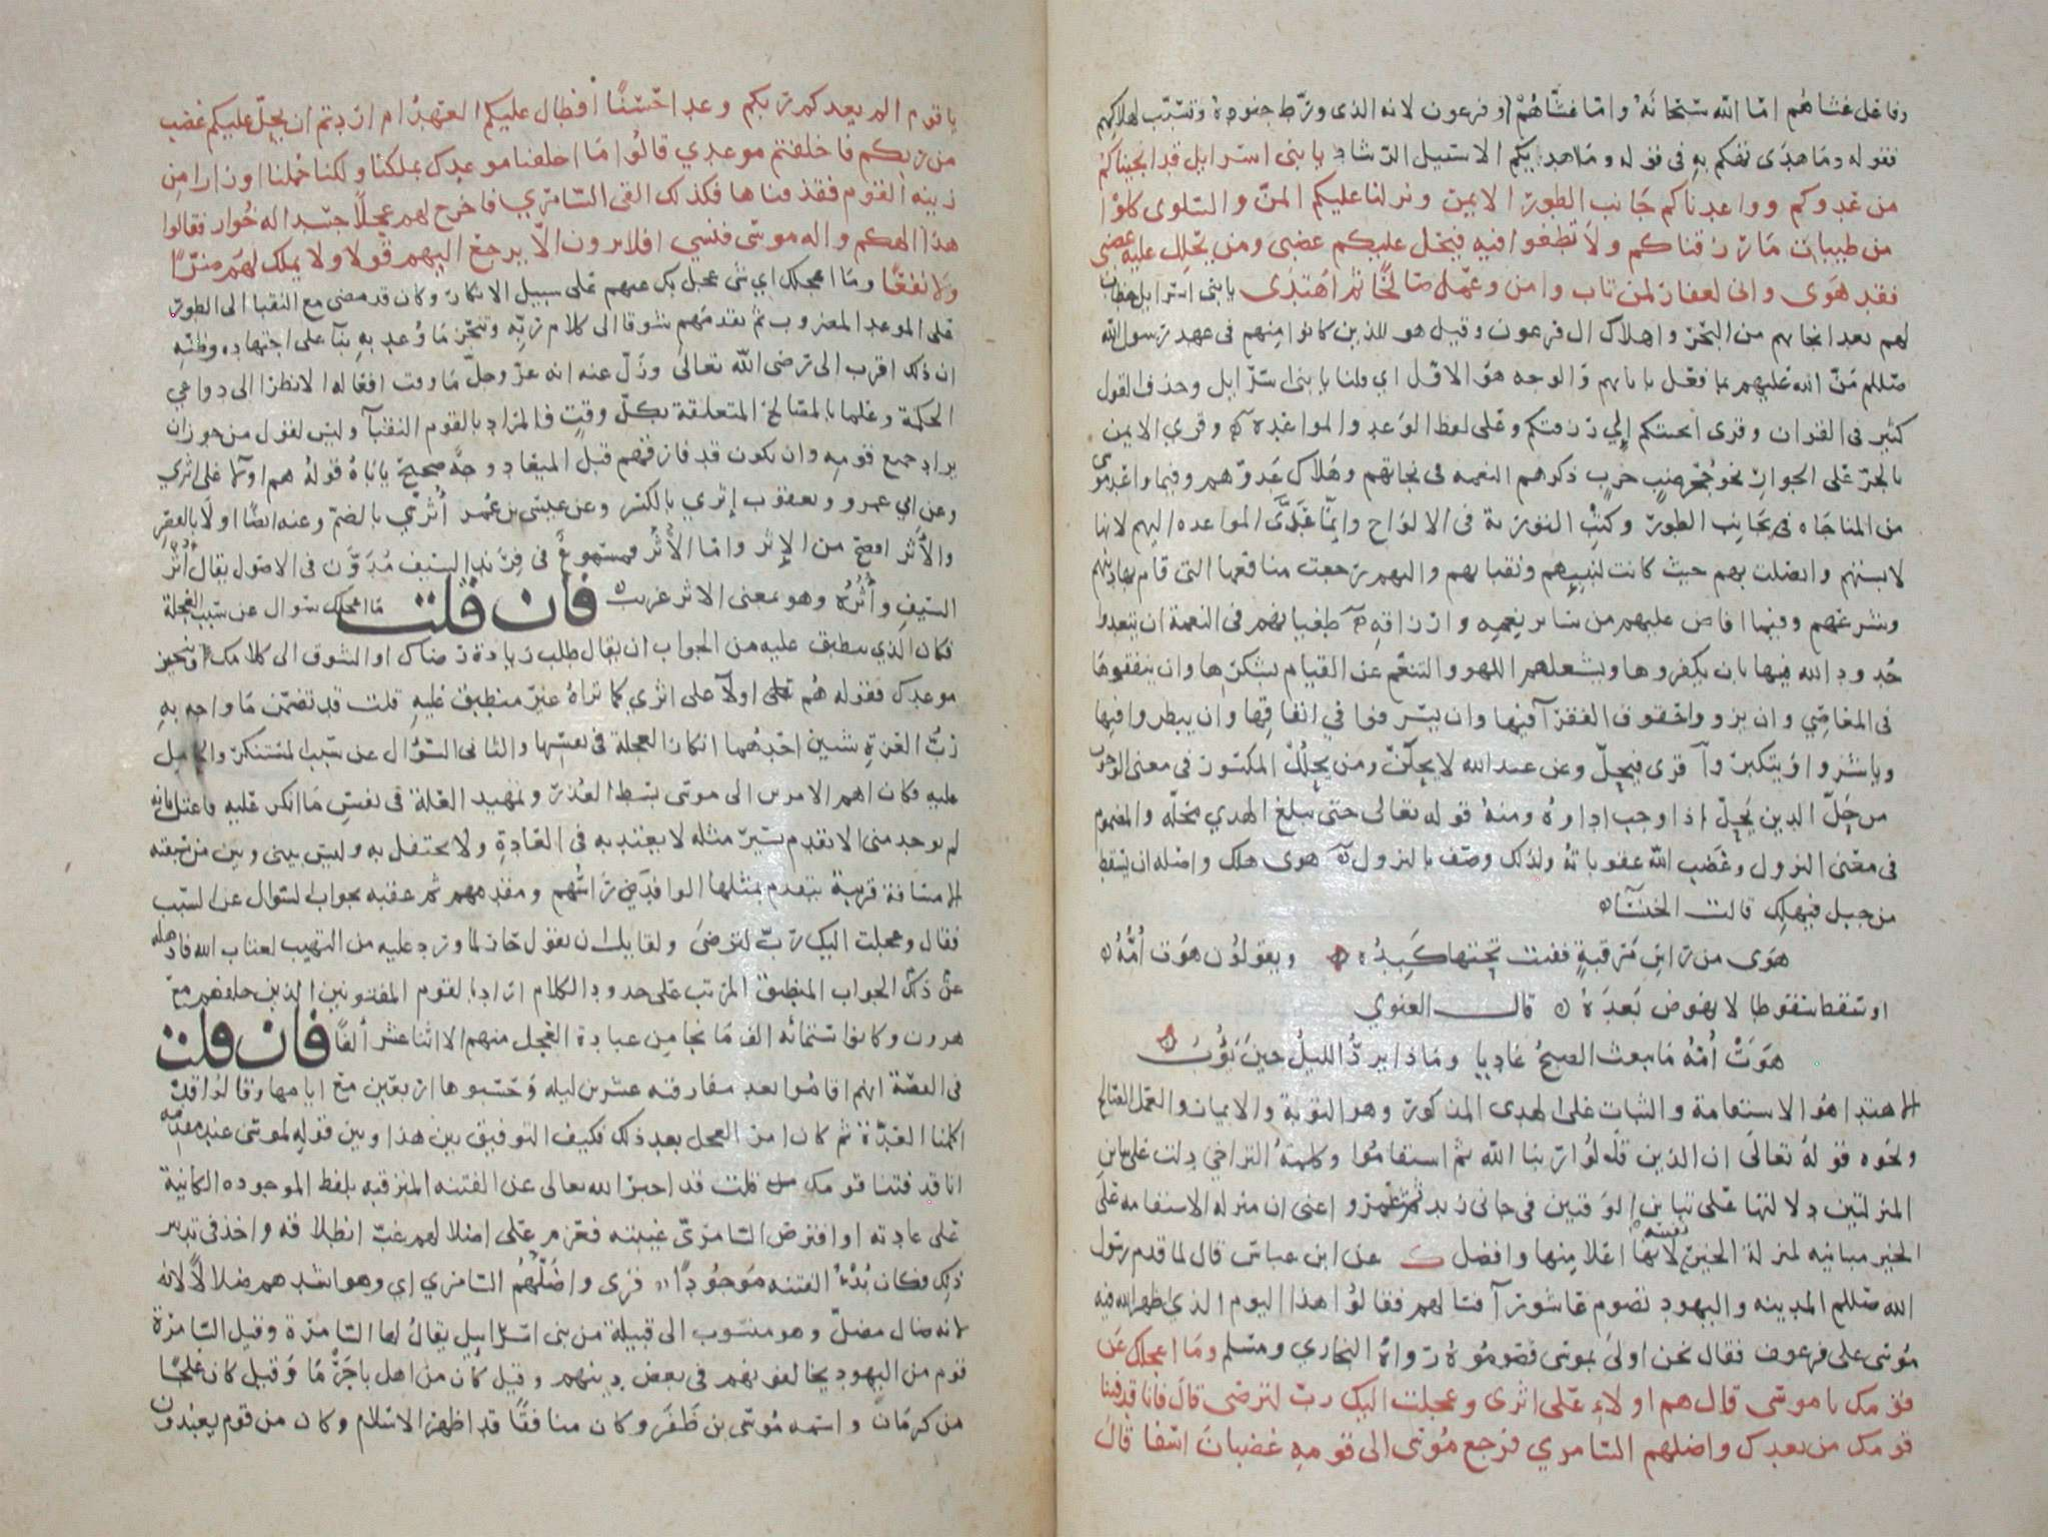 وفاعل غشاهم اما الله سبحانه واما غشاهم او فرعون لانه الذى ورط جنوده وتسبب لهلاكهم
فقوله وما هدى تهكم به فى قوله وما اهديكم الا سبيل الرشاد يا بنى اسرايل قد انجيناكم
من عدوكم وواعدناكم جانب الطور الايمن ونزلنا عليكم المن والسلوى كلوا
من طيبات ما رزقناكم ولا تطغوا فيه فيحل عليكم غضبى ومن يحلل عليه غضبى
فقد هوى وانى لغفار لمن تاب وامن وعمل صالحا ثم اهتدى يا بنى اسرايل خطاب
لهم بعد انجايهم من البحر واهلاك ال فرعون وقيل هو للذين كانوا منهم فى عهد رسول الله
صللم من الله عليهم بما فعل بابايهم والوجه هو الاول اي قلنا يا بنى اسرايل وحذف القول
كثير فى القران وقرى انجيتكم إلي رزقتكم وعلى لفظ الوعد والمواعدة وقري الايمن
بالجر على الجوار نحو جحر ضب خرب ذكرهم النعمه فى نجاتهم وهلاك عدوهم وفيما واعد موسى
من المناجاه فى بجانب الطور وكتب التورية فى الالواح وانما عدى المواعده اليهم لانها
لابستهم واتصلت بهم حيث كانت لنبيهم ونقبايهم واليهم رجعت منافعها التى قام بها دينهم
وشرعهم وفيما افاض عليهم من ساير نعمه وارزاقه طغيانهم فى النعمة ان يتعدوا
حدود الله فيها بان يكفروها ويشغلهم اللهو والتنعم عن القيام بشكرها وان ينفقوها
فى المعاصي وان يزووا حقوق الفقرآ فيها وان يسرفوا في انفاقها وان يبطروا فيها
وياشروا ويتكبروآ قرى فيحل وعن عبد الله لا يحلن ومن يحلل المكسور في معنى الوجوب
من حل الدين يحل اذا وجب اداوه ومنه قوله تعالى حتى يبلغ الهدي محله والمضموم
فى معنى النزول وغضب الله عقوباته ولذلك وصف بالنزول هوى هلك واصله ان يسقط
من جبل فيهلك قالت الخنسآ
هوى من راس مرقبة ففتت تحتها كبده ويقولون هوت أمه
او سقط سقوطا لا نهوض بعده قال الغنوي
هوت أمه ما يبعث الصبح غاديا وماذا يرد الليل حين يؤب
الاهتدا هو الاستقامة والثبات على الهدى المذكور وهو التوبة والايمان والعمل الصالح
ونحوه قوله تعالى ان الذين قالوا ربنا الله ثم استقاموا وكلمة التراخي دلت على تباين
المنزلتين دلالتها على تباين الوقتين فى جانى زيد ثم عمرو اعنى ان منزله الاستقامه على
الخير مباينه لمنزلة الخير نفسه لانها اعلا منها وافضل عن ابن عباس قال لما قدم رسول
الله صللم المدينه واليهود تصوم عاشورآ فسالهم فقالوا هذا اليوم الذي اظهر الله فيه
موسى على فرعون فقال نحن اولى بموسى فصوموه رواه البخاري ومسلم وما اعجلك عن
قومك يا موسى قال هم اولاء على اثرى وعجلت اليك رب لترضى قال فانا قد فتنا
قومك من بعدك واضلهم السامري فرجع موسى الى قومه غضبان اسفا قال
يا قوم الم يعدكم ربكم وعدا حسنا أفطال عليكم العهد ام اردتم ان يحل عليكم غضب
من ربكم فاخلفتم موعدي قالوا ما اخلفنا موعدك بملكنا ولكنا حملنا اوزارا من
زينه القوم فقذفناها فكذلك القى السامري فاخرج لهم عجلا جسدا له خوار فقالوا
هذا الهكم واله موسى فنسي افلا يرون الا يرجع اليهم قولا ولا يملك لهم ضرا
ولا نفعا وما اعجلك اي شى عجل بك عنهم على سبيل الانكار وكان قد مضى مع النقبا الى الطور
على الموعد المضروب ثم تقدمهم شوقا الى كلام ربه وتنجز ما وعد به بنآ على اجتهاده وظنه
ان ذلك اقرب الى رضى الله تعالى وزل عنه انه عز وجل ما وقت افعاله الا نظرا الى دواعي
الحكمة وعلما بالمصالح المتعلقة بكل وقت فالمراد بالقوم النقبآ وليس لقول من جوز ان
يراد جميع قومه وان يكون قد فارقهم قبل الميعاد وجه صحيح ياباه قوله هم اولآ على اثري
وعن ابي عمرو ويعقوب إثري بالكسر وعن عيسى بن عمر أثري بالضم وعنه ايضا اولا بالقصر
والأثر افصح من الإثر واما الأثر فمسموع فى فرند السيف مدون فى الاصول يقال أثر
السيف وأثره وهو بمعنى الاثر غريب فان قلت ما اعجلك سوال عن سبب العجلة
فكان الذي ينطبق عليه من الجواب ان يقال طلب زيادة رضاك او الشوق الى كلامك او تنجز
موعدك فقوله هم اولآ على اثري كما تراه غير منطبق عليه قلت قد تضمن ما واجه به
رب العزة شيين احدهما انكار العجلة فى نفسها والثانى السؤال عن سبب المستنكر والحامل
عليه فكان اهم الامرين الى موسى بسط العذر وتمهيد العلة فى نفس ما انكر عليه فاعتل بانه
لم يوجد منى الا تقدم يسير مثله لا يعتد به فى العادة ولا يحتفل به وليس بيني وبين من سبقته
الا مسافة قريبة يتقدم بمثلها الوافد راسهم ومقدمهم ثم عقبه بجواب السوال عن السبب
فقال وعجلت اليك رب لترضى ولقايل ان يقول حار لما ورد عليه من التهيب لعتاب الله فاذهله
عن ذلك الجواب المنطبق المرتب على حدود الكلام اراد بالقوم المفتونين الذين خلفهم مع
هرون وكانوا ستمائه الف ما نجا من عبادة العجل منهم الا اثنا عشر ألفا فان قلت
فى القصة انهم اقاموا بعد مفارقته عشرين ليله وحسبوها اربعين مع ايامها وقالوا قد
اكملنا العدة ثم كان امر العجل بعد ذلك فكيف التوفيق بين هذا وبين قوله لموسى عند مقدمه
انا قد فتنا قومك قلت قد اخبر الله تعالى عن الفتنه المترقبه بلفظ الموجوده الكاينة
على عادته او افترض السامري غيبته فعزم على اضلالهم غب انطلاقه واخذ فى تدبير
ذلك فكان بدء الفتنه موجودا قرى واضلهم السامري اي وهو اشدهم ضلالا لانه
لانه ضال مضل وهو منسوب الى قبيلة من بنى اسرايل يقال لها السامرة وقيل السامرة
قوم من اليهود يخالفونهم فى بعض دينهم وقيل كان من اهل باجرما وقيل كان علجا
من كرمان واسمه موسى بن ظفر وكان منافقا قد اظهر الاسلام وكان من قوم يعبدون